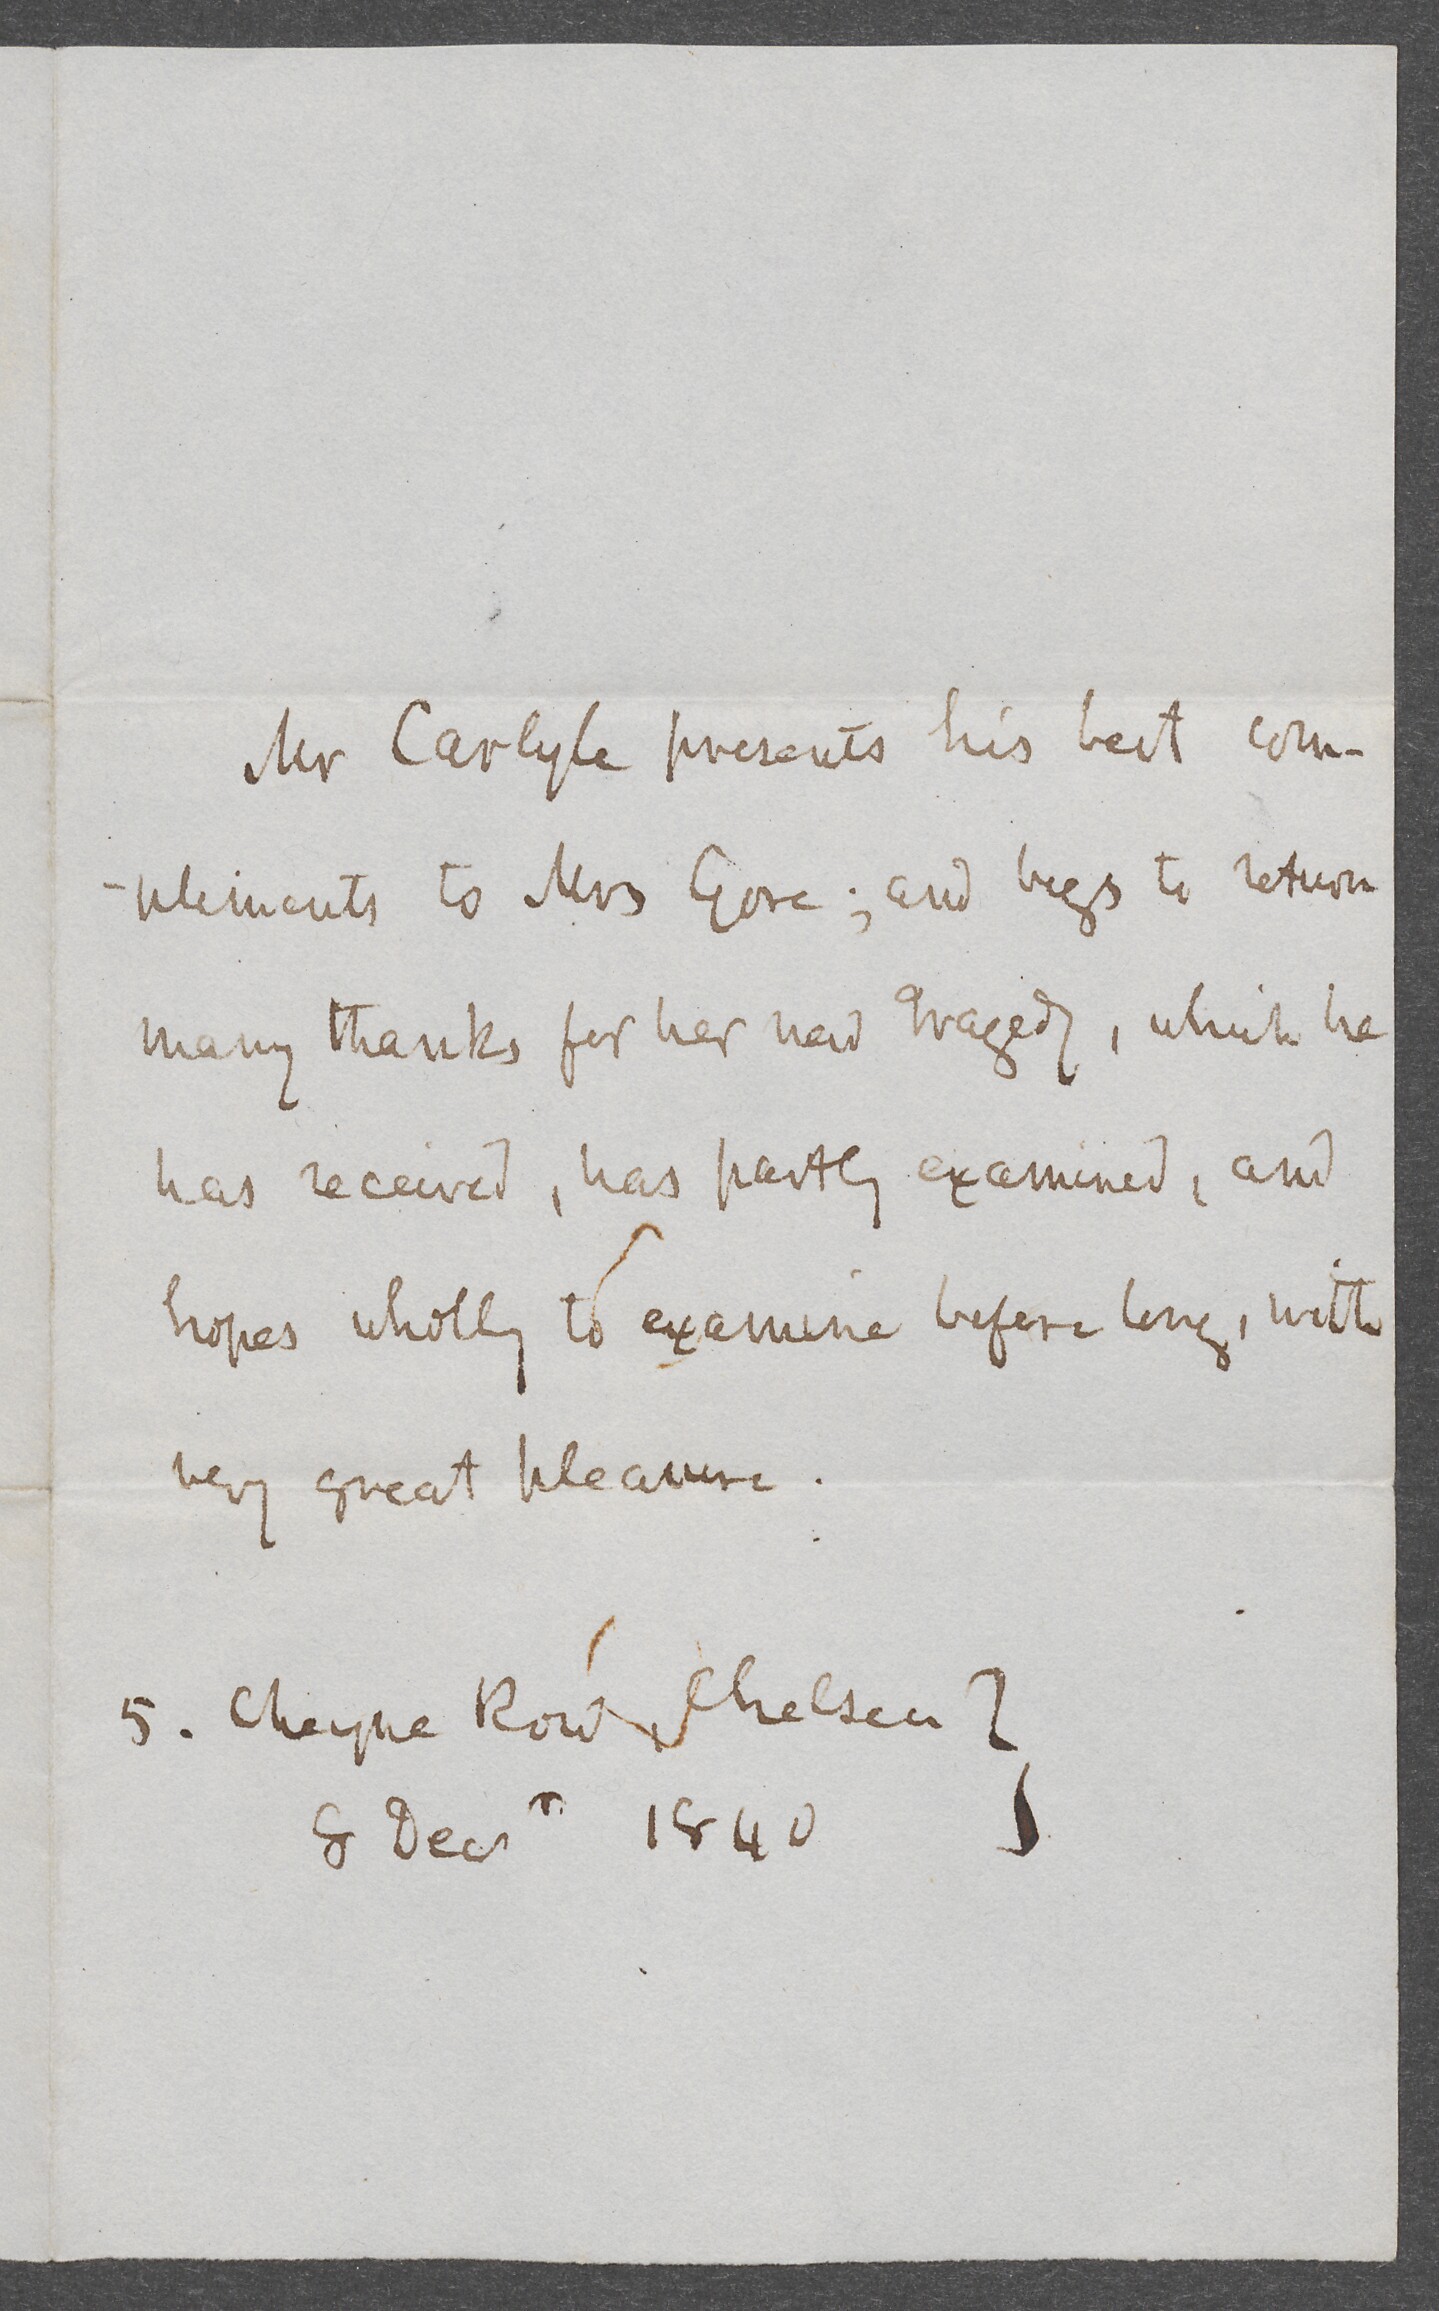 Mr Carlyle presents his best com-
-pliments to Mrs Gore; and begs to return
many thanks for her new Tragedy, which he
has received, has partly examined, and
hopes wholly to examine before long, with
very great pleasure.
5. Cheyne Row, Chelsea }
8 Decr 1840